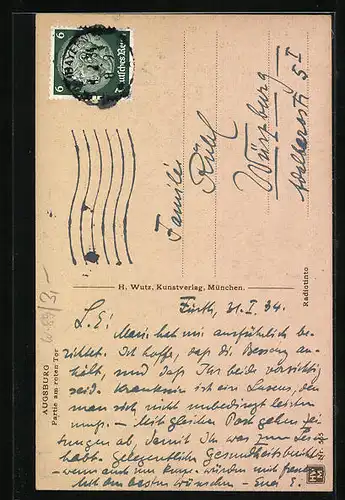 6
6
Deutsches Reich
Familie
Rückel
Würzburg
5 I
H. Wutz, Kunstverlag, München.
Radiotinto
AUGSBURG
Partie am roten Tor
Fürth, 21. I. 34.
L. E!
Marie hat mir ausführlich be-
richtet. Ich hoffe, daß die Besserung an-
hält, und daß Ihr beide vorsichtig
seid. Kranksein ist ein Luxus, den
man sich nicht unbedingt leisten
muss. — Mit gleicher Post gehen Zei-
tungen ab, damit Ihr was zum Lesen
habt. Gelegentliche Gesundheitsberichte
— wenn auch nur kurze — würden mich freuen
Mit den besten Wünschen — Euer E.
HWM